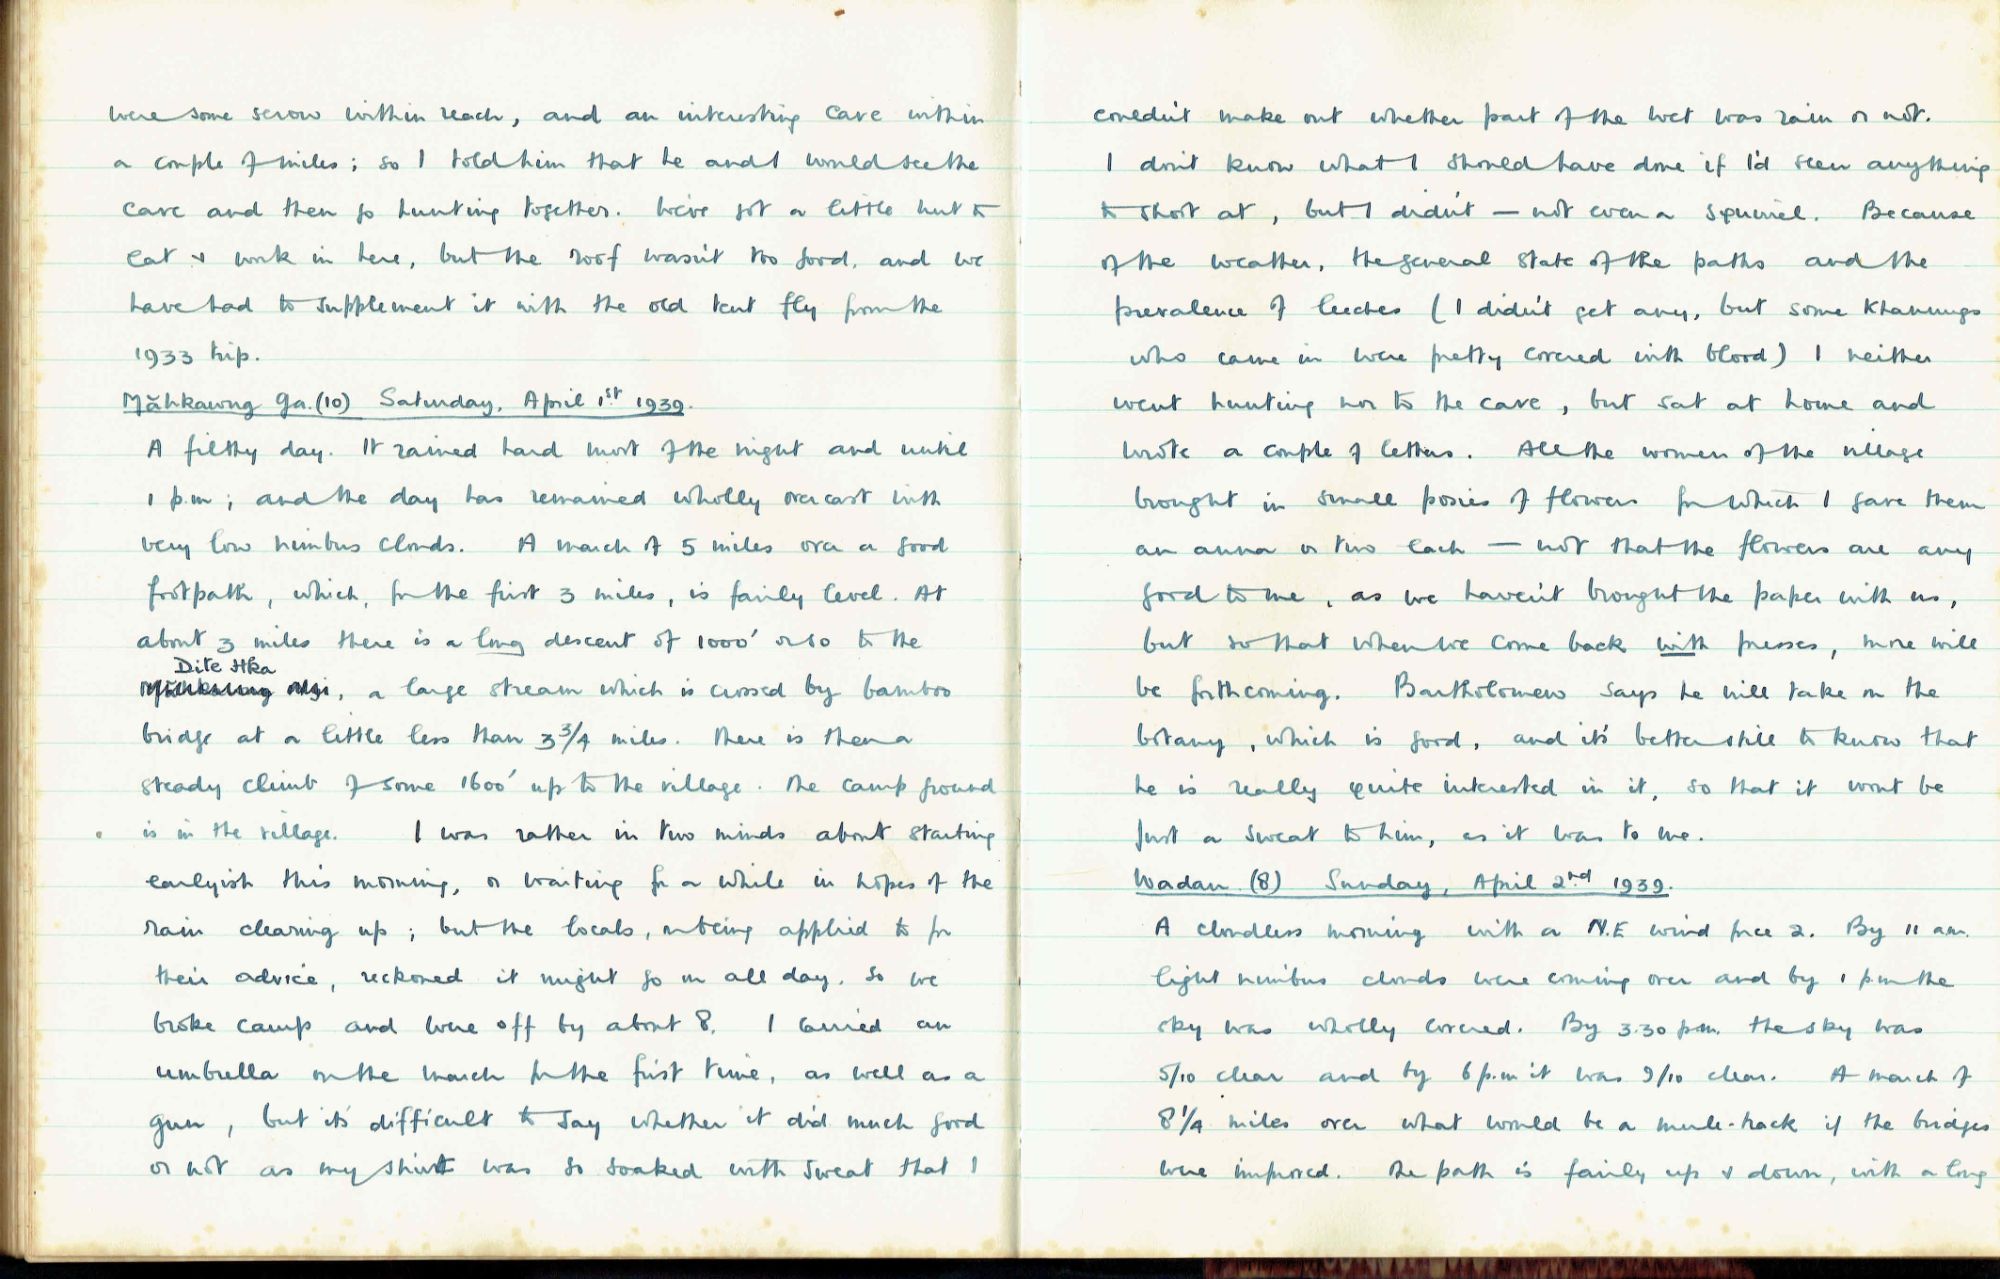 were some serow within reach, and an interesting cave within
a couple of miles; so I told him that he and I would see the
cave and then go hunting together. We've got a little hut to
eat & work in here, but the roof wasn't too good, and we
have had to supplement it with the old tent fly from the
1933 trip.
Mǎhkawng Ga. (10) Saturday, April 1st 1939.
A filthy day. It rained hard most of the night and until
1 p.m; and the day has remained wholly overcast with
very low nimbus clouds. A march of 5 miles over a good
footpath, which, for the first 3 miles, is fairly level. At
about 3 miles there is a long descent of 1000' or so to the
Dite Hka
, a large stream which is crossed by bamboo
bridge at a little less than 3 3/4 miles. There is then a
steady climb of some 1600' up to the village. The camp ground
is in the village. I was rather in two minds about starting
earlyish this morning, or waiting for a while in hopes of the
rain clearing up; but the locals, on being applied to for
their advice, reckoned it might go on all day. So we
broke camp and were off by about 8. I carried an
umbrella on the march for the first time, as well as a
gun, but it's difficult to say whether it did much good
or not as my shirt was so soaked with sweat that I
couldn't make out whether part of the wet was rain or not.
I don't know what I should have done if I'd seen anything
to shoot at, but I didn't — not even a squirrel. Because
of the weather, the general state of the paths and the
prevalence of leeches (I didn't get any, but some Khanungs
who came in were pretty covered with blood) I neither
went hunting nor to the cave, but sat at home and
wrote a couple of letters. All the women of the village
brought in small posies of flowers for which I gave them
an anna or two each — not that the flowers are any
good to me, as we haven't brought the paper with us,
but so that when we come back with presses, more will
be forthcoming. Bartholomew says he will take on the
botany, which is good, and it's better still to know that
he is really quite interested in it, so that it wont be
just a sweat to him, as it was to me.
Wadan (8) Sunday, April 2nd 1939.
A cloudless morning with a N.E wind force 2. By 11 am.
light nimbus clouds were coming over and by 1 p.m the
sky was wholly covered. By 3.30 p.m. the sky was
5/10 clear and by 6 p.m it was 9/10 clear. A march of
8 1/4 miles over what would be a mule-track if the bridges
were improved. The path is fairly up & down, with a long